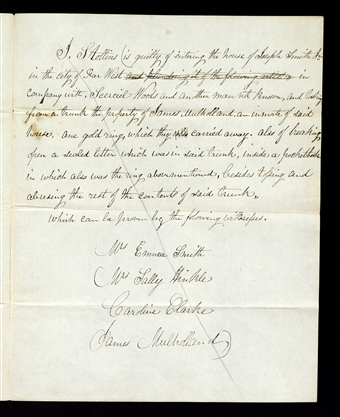 J. Stollins is guilty of entering the house of Joseph Smith Jr
in the city of Far West and plundering it of the following articles in
company with Sercial Woods and another man not known, and taking
from a trunk the property of James Mulholland an inmate of said
house, one gold ring, which they carried away. also of breaking
open a sealed letter which was in said trunk, inside a pocketbook
in which also was the ring abovementioned, besides tossing and
abusing the rest of the contents of said trunk,
which can be proven by the following witnesses.
Mrs Emma Smith
Mrs Sally Hinkle
Caroline Clarke
James Mulholland